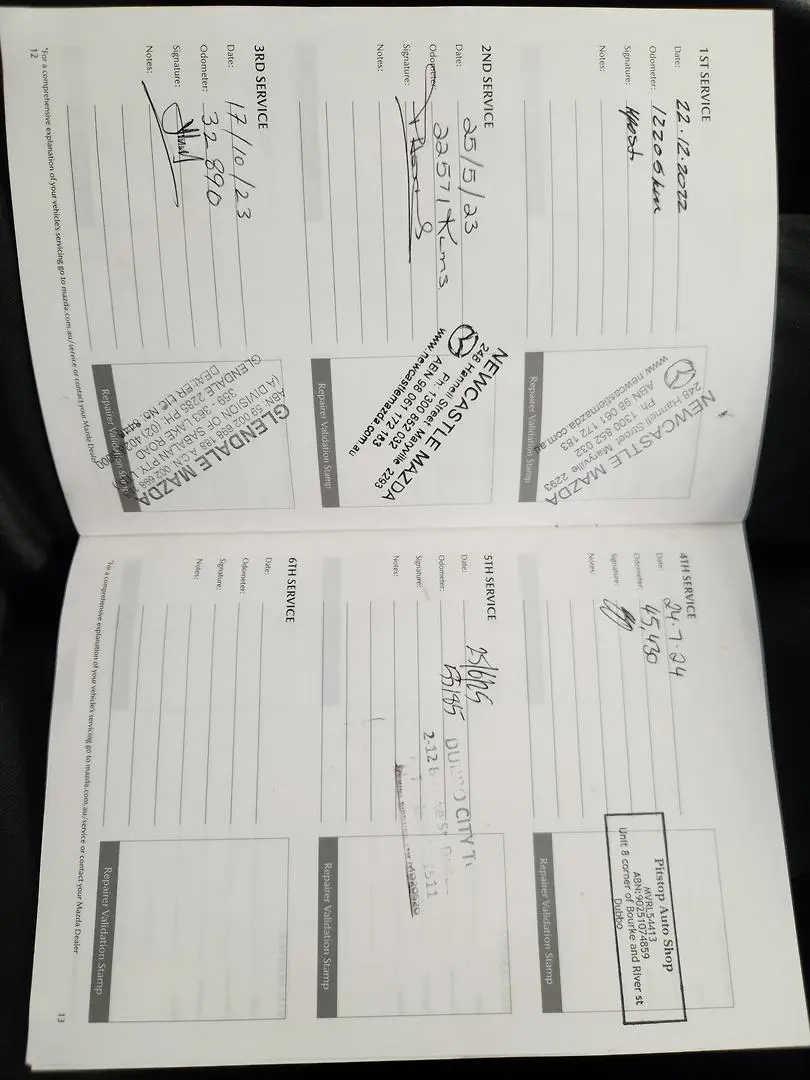 1ST SERVICE
Date: 22.12.2022
Odometer: 12205km
Signature:
Notes:
NEWCASTLE MAZDA
248 Hannell Street Maryville 2293
Ph: 1300 852 032
ABN 98 061 172 183
www.newcastlemazda.com.au
Repairer Validation Stamp
2ND SERVICE
Date: 25/5/23
Odometer: 22571 Kms
Signature:
Notes:
NEWCASTLE MAZDA
248 Hannell Street Maryville 2293
Ph: 1300 852 032
ABN 98 061 172 183
www.newcastlemazda.com.au
Repairer Validation Stamp
3RD SERVICE
Date: 17/10/23
Odometer: 32890
Signature:
Notes:
GLENDALE MAZDA
(A DIVISION OF PTY.
359 - 363 LAKE ROAD
GLENDALE 2285 PH: (02)
DEALER LIC No.
Repairer Validation Stamp
*For a comprehensive explanation of your vehicle's servicing go to mazda.com.au/service or contact your Mazda Dealer
12
4TH SERVICE
Date: 24.7.24
Odometer: 45,430
Signature:
Notes:
Pitstop Auto Shop
MVRL54413
ABN:90251074859
Unit 8 corner of Bourke and River st
Dubbo
Repairer Validation Stamp
5TH SERVICE
Date: 25/6/25
Odometer:
Signature:
Notes:
CITY
2-12
Repairer Validation Stamp
6TH SERVICE
Date:
Odometer:
Signature:
Notes:
Repairer Validation Stamp
*For a comprehensive explanation of your vehicle's servicing go to mazda.com.au/service or contact your Mazda Dealer
13